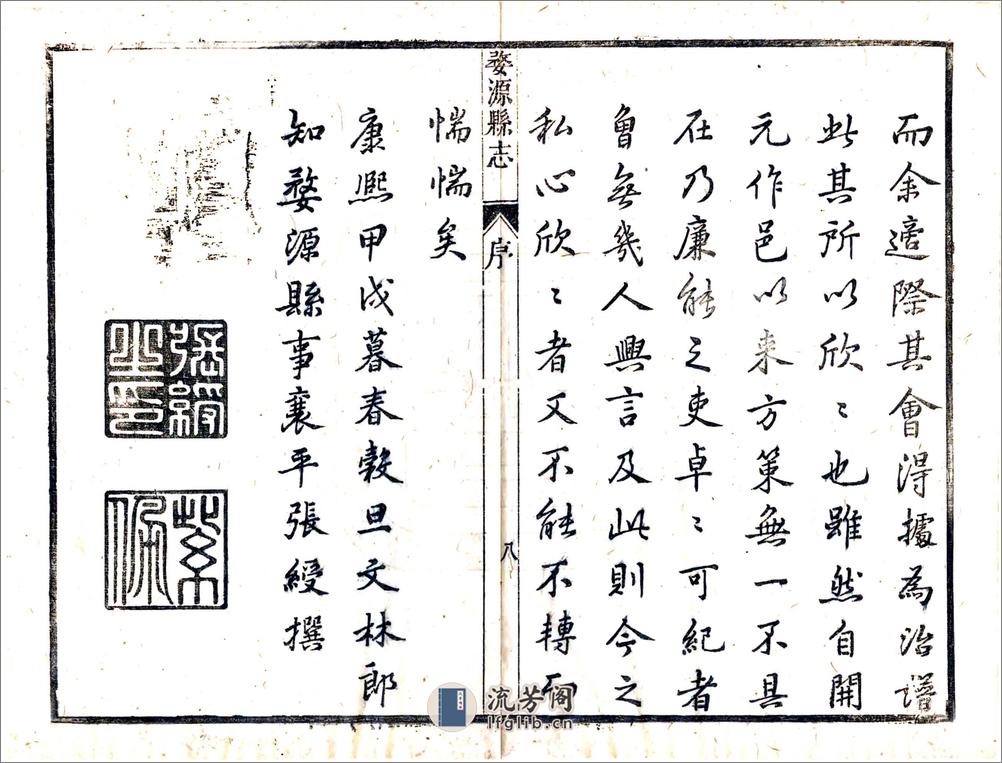 而余適際其會得據為治譜
此其所以欣〻也雖然自開
元作邑以来方策無一不具
在乃廉能之吏卓〻可紀者
曾無幾人興言及此則今之
私心欣〻者又不能不轉而
婺源縣志
序
八
惴惴矣
康熙甲戌暮春穀旦文林郎
知婺源縣事襄平張綬撰
張綬之印
紫佩
流芳阁
lfglib.cn